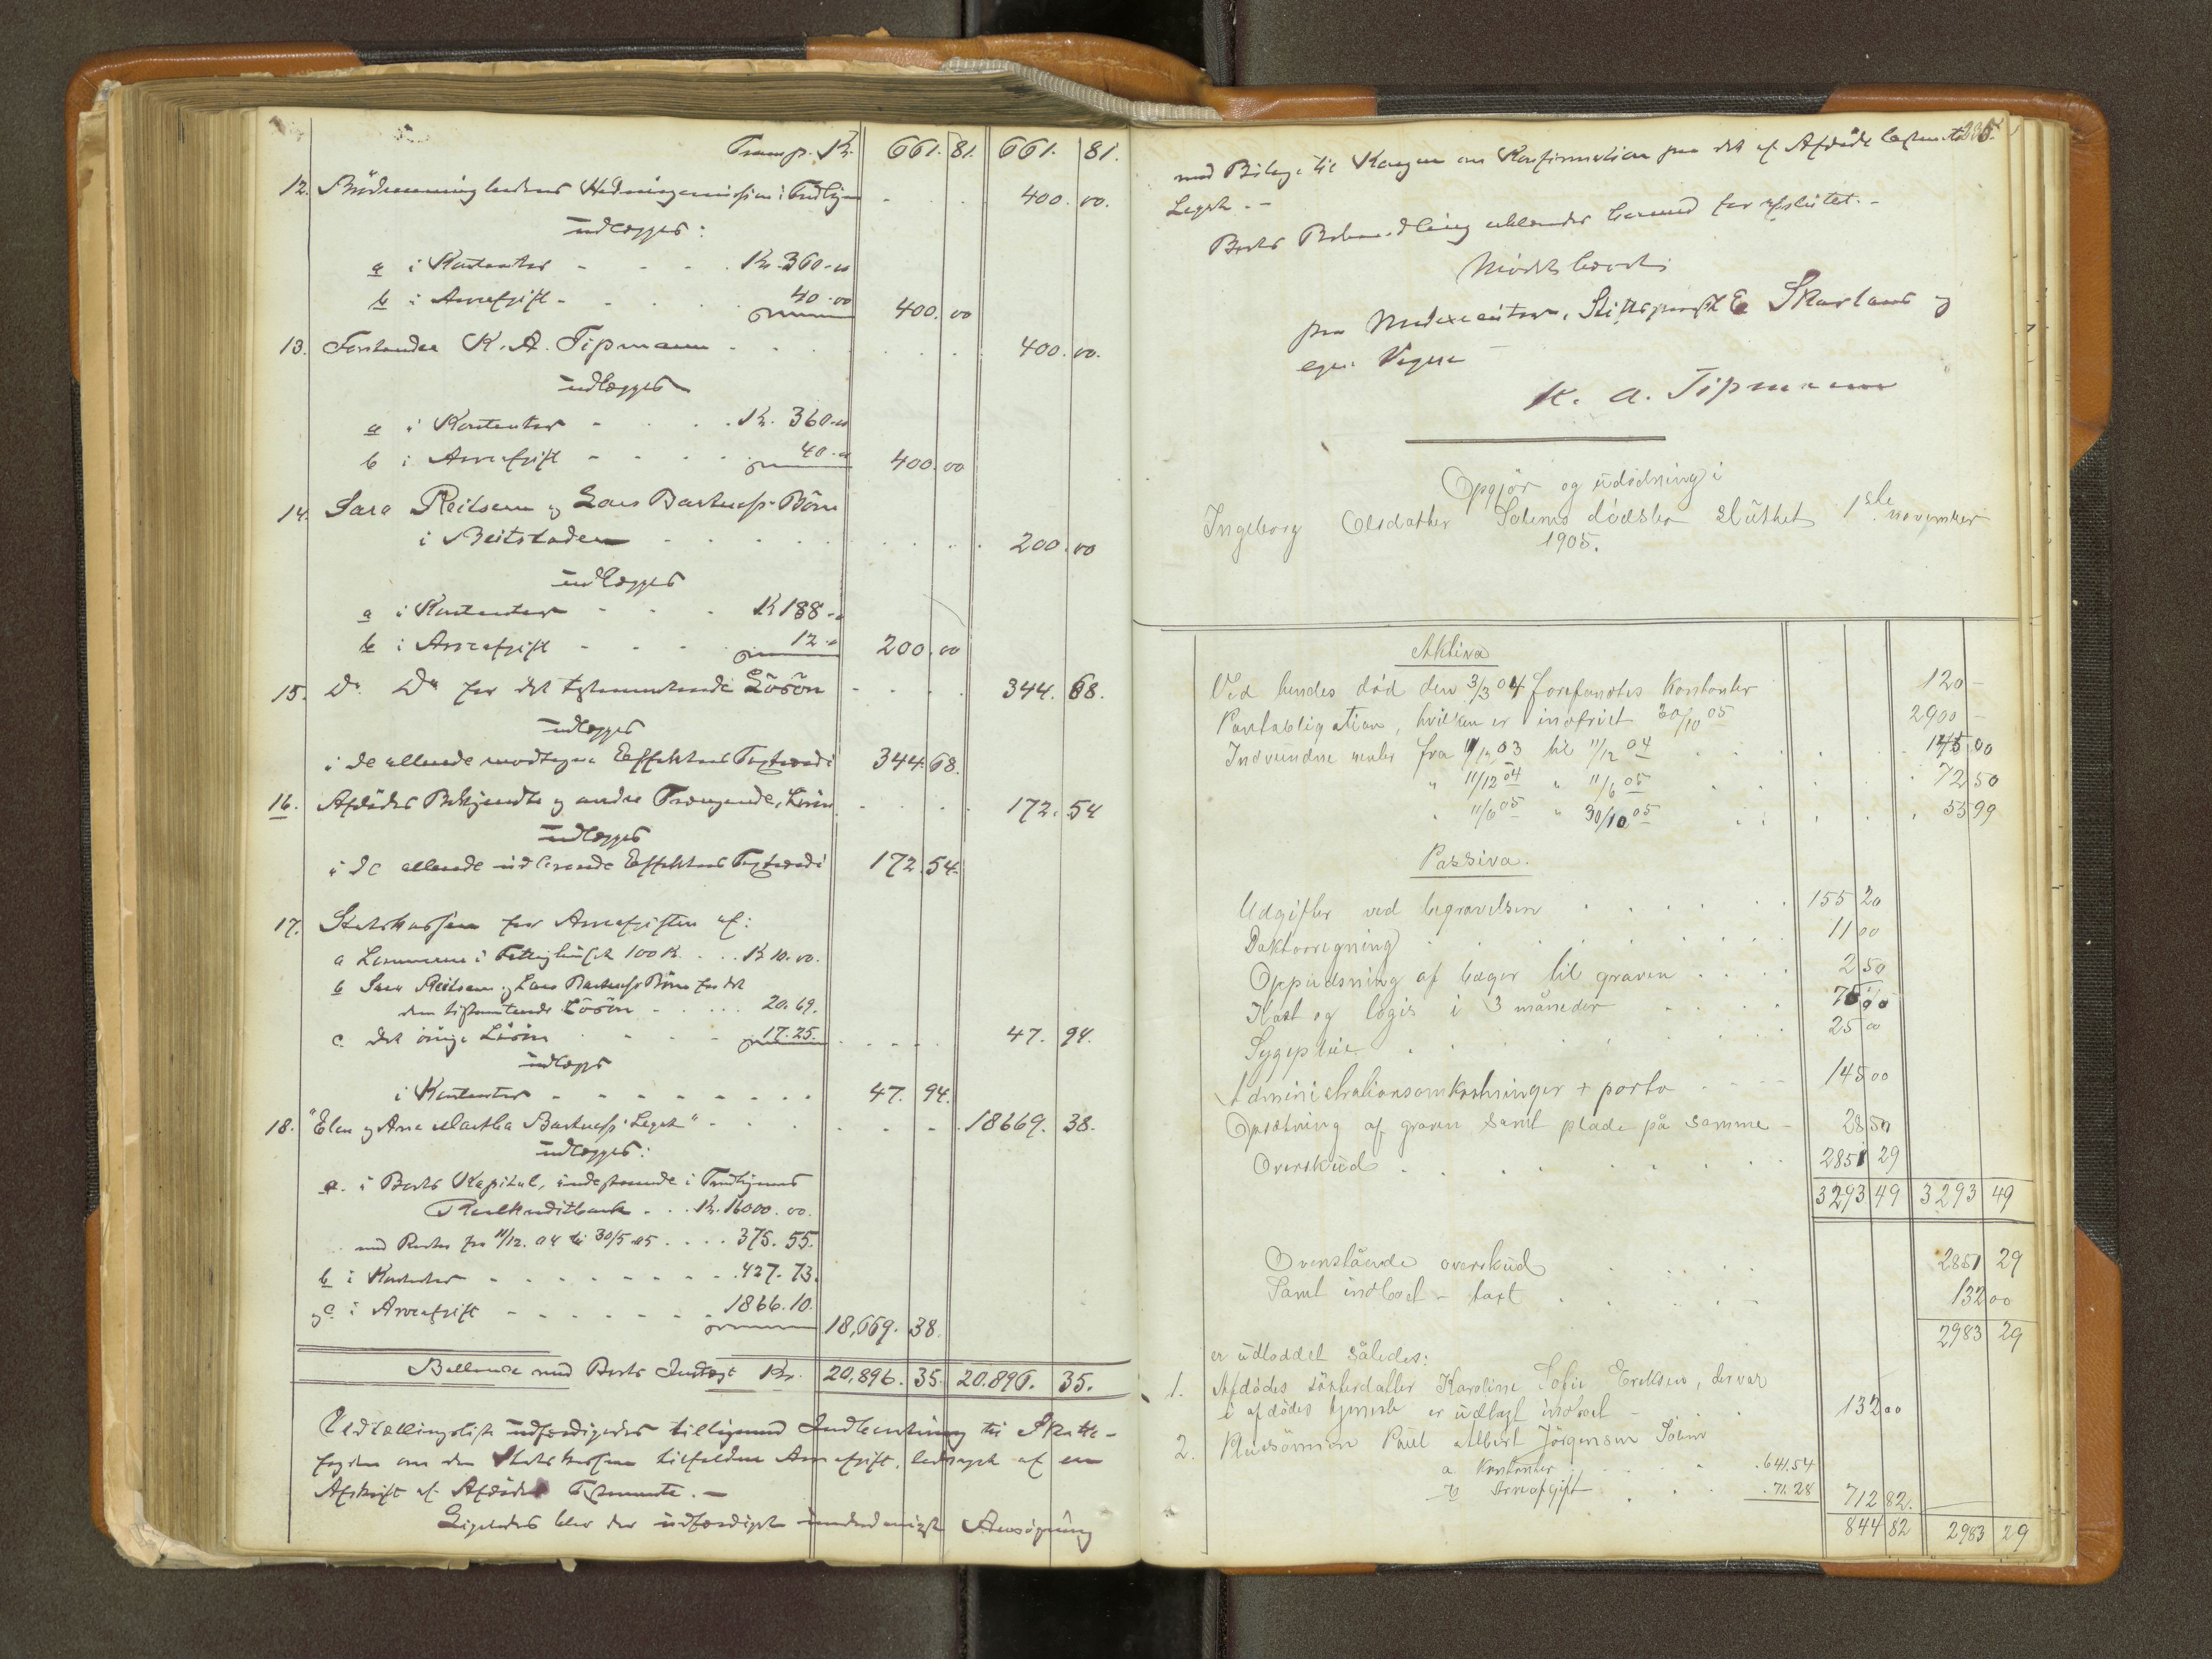 Transp. Kr. 661. 81. 661. 81.
12. Brödremenighedens Hedningemission i Trdhjem - - - 400. 00.
udlægges:
a i Kontanter - - - Kr. 360.00
b i Arveafgift - - - 40.00 400. 00
13. Forstander K. A. Tipmann - - - 400. 00.
udlægges
a i Kontanter - - - Kr. 360.00
b i Arveafgift - - - 40.00 400. 00
14. Sara Reitsem og Lars Bartnes's Börn
i Beitstaden - - - 200. 00
udlægges
a i Kontanter - - - Kr 188.00
b i Arveafgift - - - 12.00 200. 00
15. Do Do for det testamenterede Lösön - - - 344. 68.
udlægges
i de allerede modtagne Effekters Taxtværdi 344. 68.
16. Afdödes Bekjendte og andre Trængende, Lösön - - - 172. 54
udlægges
i de allerede udleverede Effekters Taxtværdi 172. 54.
17. Statskassen for Arveafgiften af:
a Lemmerne i 100 K. . . . K 10.00.
b Sara Reitsem og Lars Bartnes's Börn for det
dem testamenterede Lösön - - - 20.69.
c. det övrige Lösön - - - 17.25. - - - 47. 94.
udlægges
i Kontanter - - - 47. 94.
18. "Elen og Ane Martha Bartnes's Legat" - - - 18669. 38.
udlægges:
a. i Boets Kapital, indestaaende i Trondhjems
Realkreditbank . . . Kr. 16000.00.
med Renter fra 11/12.04 til 30/5 05 . . . . 375. 55.
b i Kontanter - - - 427. 73.
og c i Arveafgift - - - 1866.10. 18,669. 38.
Ballance med Boets Indtægt Kr. 20,896. 35. 20.896. 35.
Udlodningsliste udfærdigedes tilligemed Indberetning til Skatte-
fogden om den Statskassen tilfaldne Arveafgift, ledsaget af en
Afskrift af Afdödes Testamente. -
Ligeledes blev der udfærdiget underdanigst Ansögning
235.
med Bilage til Kongen om Konfirmation paa det af Afdöde bestemte
Legat. -
Boets Behandling erklæredes hermed for afsluttet. -
paa Medexecutor, Stiftsprovst E Skavlans og
egne Vegne
K. A. Tipmann
Opgjör og udlodning i
Ingeborg Olsdatter Solems dödsbo sluttet 1ste november
1905.
Aktiva
Ved hendes död den 3/3 04 forefandtes kontanter 120 -
Pantobligation, hvilken er indfriet 30/10 05 2900 -
Indvundne renter fra 11/12 03 til 11/12 04 . . . 145 00
" 11/12 04 " 11/6 05 . . . 72 50
" 11/6 05 " 30/10 05 . . . 55 99
Passiva.
Udgifter ved begravelsen . . . 155 20
Doktorregning . . . 11 00
Oppudsning af bæger til graven . . . 2 50
Kost og logis i 3 måneder . . . 75 00
Sygepleie . . . 25 00
Administrationsomkostninger + porto - - - 145 00
Opsætning af graven samt plade på samme - 28 50
Overskud . . . 2851 29
3293 49 3293 49
Ovenstående overskud . . . 2851 29
Samt indboet - taxt . . . 132 00
2983 29
er udloddet således:
1. Afdödes sösterdatter Karoline Sofie Eriksen, der var
i afdödes tjeneste er udlagt indboet - . . 132 00
2. Pleiesönnen Paul Albert Jörgensen Solem
a Kontanter . . . 641.54
b Arveafgift . . . 71.28 712 82.
844 82 2983 29